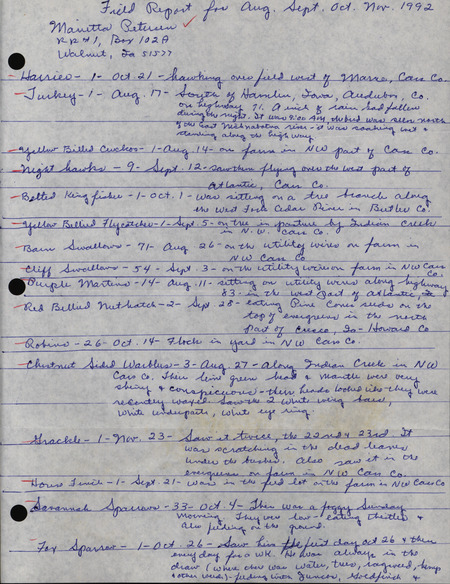 Field Report for Aug. Sept. Oct. Nov. 1992
Marietta Petersen
RR#1, Box 102A
Walnut, Ia 51577
Harrier - 1 - Oct 21 - hawking over field west of Marne, Cass Co.
Turkey - 1 - Aug 17 - South of Hamlin, Iowa, Audubon, Co.
on highway 71. A inch of rain had fallen
during the night. It was 9:00 AM, the bird was seen north
of the East Nishnabotna river - it was soaking wet &
standing along the highway
Yellow Billed Cuckoo - 1 - Aug 14 - on farm in NW part of Cass Co.
Night hawks - 9 - Sept. 12 - saw them flying over the west part of
Atlantic, Cass Co.
Belted Kingfisher - 1 - Oct. 1 - was sitting on a tree branch along
the west Fork Cedar River in Butler Co.
Yellow Bellied Flycatcher - 1 - Sept. 5 - on the in pasture by Indian Creek
in N.W. Cass Co.
Barn Swallows - 71 - Aug 26 - on the utility wires on farm in
NW Cass Co
Cliff Swallows - 54 - Sept. 3 - on the utility wire on farm in NW Cass
Co.
Purple Martins - 14 - Aug. 11 - sitting on utility wires along highway
83 - in the west part of Atlantic, Ia
Red Bellied Nuthatch - 2 - Sept 28 - eating Pine Cones seeds on the
top of evergreens in the north
part of Cresco, Ia - Howard Co
Robins - 26 - Oct. 14 - Flock in yard in NW Cass Co.
Chestnut Sided Warblers - 3 - Aug. 27 - Along Indian Creek in NW
Cass Co. Their lime green head & mantle were very
shiny & conspicuous - their heads looked like they were
recently waxed. Saw the 2 white wing bars,
white underparts, white eye ring.
Grackle - 1 - Nov. 23 - Saw it twice, the 22nd & 23rd. It
was scratching in the dead leaves
under the bushes. Also saw it in the
evergreens on farm in NW Cass Co.
House Finch - 1 - Sept. 21 - was in the feed lot on the farm in NW Cass Co
Savannah Sparrows - 33 - Oct. 4 - There was a foggy Sunday
morning. They were low - eating thistles &
also feeding on the ground.
Fox Sparrow - 1 - Oct. 26 - Saw his first day Oct 26 & then
every day for a wk. He was always in the
draw (where there was water, trees, ragweed, hemp
& other weeds - feeding with Juncos, Goldfinch &